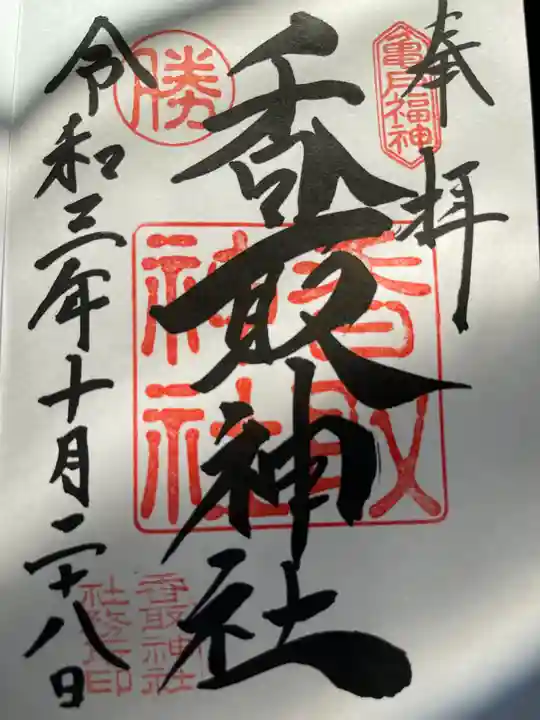 奉拝
亀戸福神
香取神社
香取神社
勝
令和三年十月二十八日
香取神社
社務所印